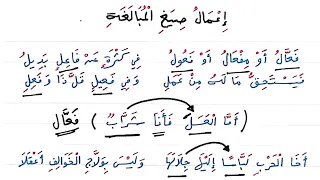 إِعْمَالُ صِيَغِ الْمُبَالَغَةِ
فَعَّالٌ أَوْ مِفْعَالٌ أَوْ فَعُولُ فِي كَثْرَةٍ عَنْ فَاعِلٍ بَدِيلُ
فَيَسْتَحِقُّ مَا لَهُ مِنْ عَمَلِ وَفِي فَعِيلٍ قَلَّ ذَا وَفَعِلِ
(أَمَّا الْعَسَلَ فَأَنَا شَرَّابٌ) فَعَّال
أَخَا الْحَرْبِ لَبَّاسًا إِلَيْهَا جِلَالَهَا وَلَيْسَ بِوَلَّاجِ الْخَوَالِفِ أَعْقَلَا